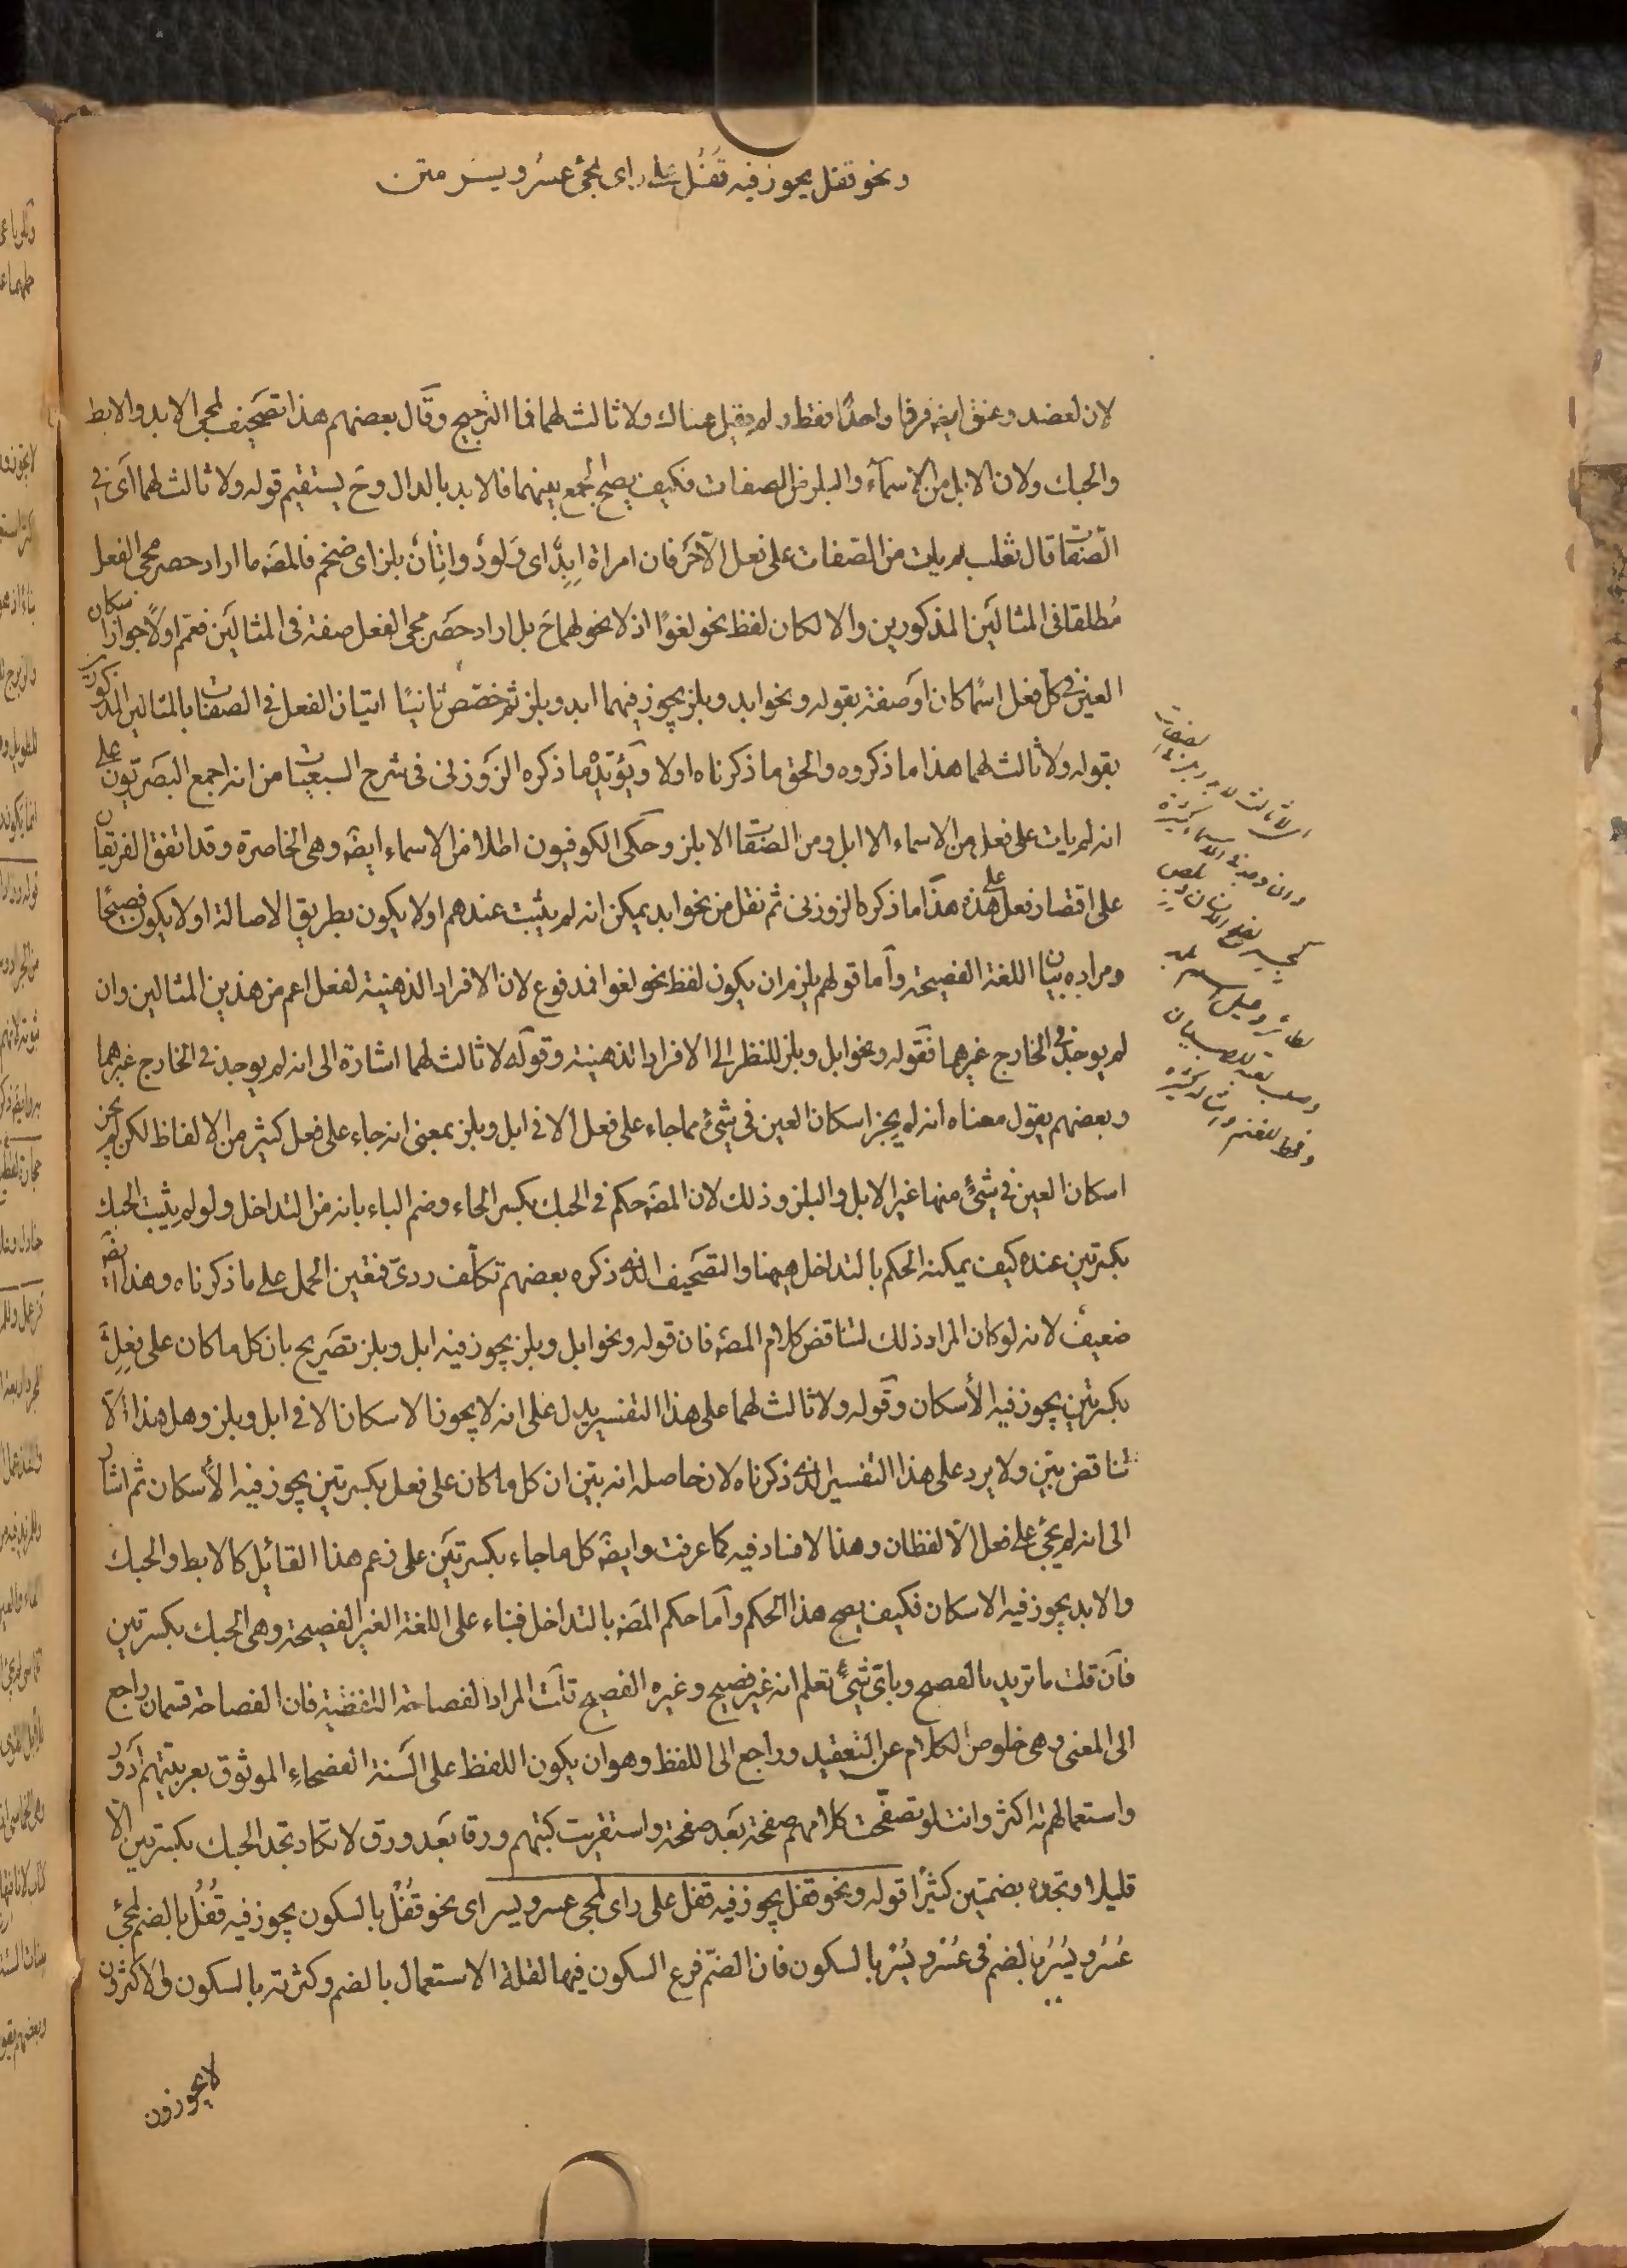 ونحو قفل يجوز فيه قُفُل على راى لمجئ عسر ويسر متن
لان لعضد وعنق ايضه فرقا واحدًا فقط ولم يقبل هناك ولا ثالث لهما فما الترجيح وقال بعضهم هذا تصحيف لمجى الابد والابط
والحبك ولان الابل من الاسمآء والبلز من الصفات فكيف يصح الجمع بينهما فالابد بالدال وح يستقيم قوله ولا ثالث لهما اى فى
الصفات قال ثعلب لم يات من الصفات على فعل الا حرفان امراة اِبِدٌ اى وَلودٌ واتانٌ بلز اى ضخم فالمصَه ما اراد حصر مجى الفعل
مُطلقا فى المثالَين المذكورين والا لكان لفظ نحو لغوًا اذ لا نحو لهما ح بل اراد حصَر مجى الفعل صفة فى المثالَين فعمّم اولًا جواز اسكان
العين فى كل فعل اسمًا كان اوصفة بقوله ونحو ابد وبلز يجوز فيهما ابد وبلز ثم خصّص ثانيًا اتيان الفعل فى الصفات بالمثالين المذكورين
بقوله ولا ثالث لهما هذا ما ذكروه والحق ما ذكرناه اولا ويؤيّده ما ذكره الزَوزنى فى شرح السبعيات من انه اجمع البصَريّون على
انه لم يات على فعل من الاسماء الا ابل ومن الصفات الا بلز وحكى الكوفيون اطلا من الاسماء ايضَه وهى الخاصرة وقد اتفق الفريقان
على اقتصار فعل على هذه هذا ما ذكره الزوزنى ثم نقل من نحو ابد يمكن انه لم يثبت عندهم اولا يكون بطريق الاصالة اولا يكون فصيحًا
ومراده بيان اللغة الفصيحة وأما قولهم يلزم ان يكون لفظ نحو لغوا فمدفوع لان الافراد الذهنية لفعل اعم من هذين المثالين وان
لم يوجد فى الخارج غيرهما فقوله ونحو ابل وبلز للنظر الى الافراد الذهنية وقوله لا ثالث لهما اشارة الى انه لم يوجد فى الخارج غيرهما
وبعضهم يقول معناه انه لم يجز اسكان العين فى شئ مما جاء على فعل الا فى ابل وبلز بمعنى انه جاء على فعل كثير من الالفاظ لكن لم يجز
اسكان العين فى شئ منها غير الابل والبلز وذلك لان المصَه حكم فى الحبك بكسر الحاء وضم الباء بانه من التداخل ولو لم يثبت الحبك
بكسرتين عنده كيف يمكنه الحكم بالتداخل ههنا والتصحيف الذى ذكره بعضهم تكلّف ردىّ فتعين الحمل على ما ذكرناه وهذا ايضَه
ضعيف لانه لو كان المراد ذلك لتناقض كلام المصَه فان قوله ونحو ابل وبلز يجوز فيه ابل وبلز تصريح بان كل ما كان على فعِلٍ
بكسرتين يجوز فيه الأسكان وقوله ولا ثالث لهما على هذا التفسير يدل على انه لا يجوز الاسكان الا فى ابل وبلز وهل هذا الّا
تناقض بيّن ولا يرد على هذا التفسير الذى ذكرناه لان حاصله انه بيّن ان كل ما كان على فعل بكسرتين يجوز فيه الأسكان ثم اشار
الى انه لم يجئ على فعل الا لفظان وهذا لا فساد فيه كما عرفت وايضَه كل ما جاء بكسرتَين على زعم هذا القائل كالابط والحبك
والابد يجوز فيه الاسكان فكيف يصح هذا الحكم وأما حكم المصَه بالتداخل فبناء على اللغة الغير الفصيحة وهى الحبك بكسرتين
فآن قلت ما تريد بالفصيح وباىّ شئٍ تعلم انه غير فصيح وغيره الفصيح قلت المراد الفصاحة اللفظية فان الفصاحة قسمان راجع
الى المعنى وهى خلوص الكلام عن التعقيد وراجع الى اللفظ وهو ان يكون اللفظ على السنة الفصحاءِ الموثوق بعربيّتهم أدوَر
واستعمالهم له اكثر وانت لو تصفّحت كلامهم صفحة بعد صفحة واستقريت كتبهم ورقا بعد ورق لا تكاد تجد الحبك بكسرتين الا
قليلا وتجده بضمتين كثيرًا قوله ونحو قفل يجوز فيه قفل على راى لمجئ عسر ويسر اى نحو قُفْل بالسكون يجوز فيه قُفُل بالضم لمجئ
عُسُر ويُسُر بالضم فى عُسْر ويُسْر بالسكون فان الضمّ فرع السكون فيهما لقلة الاستعمال بالضم وكثرته بالسكون والاكثرون
لا يجوزون